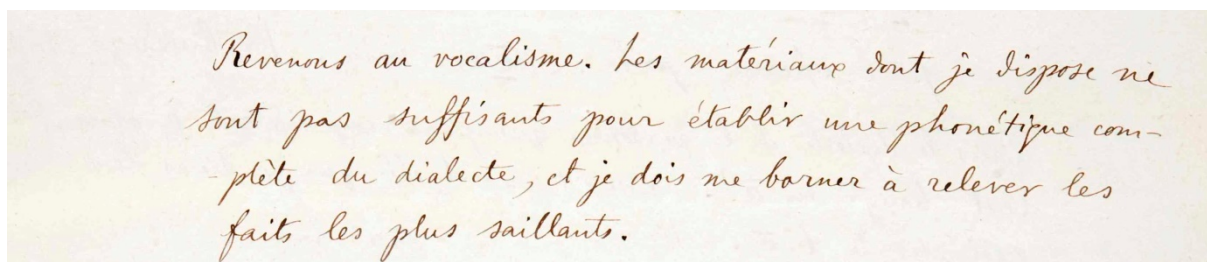 Revenons au vocalisme. Les matériaux dont je dispose ne
sont pas suffisants pour établir une phonétique com-
-plète du dialecte, et je dois me borner à relever les
faits les plus saillants.